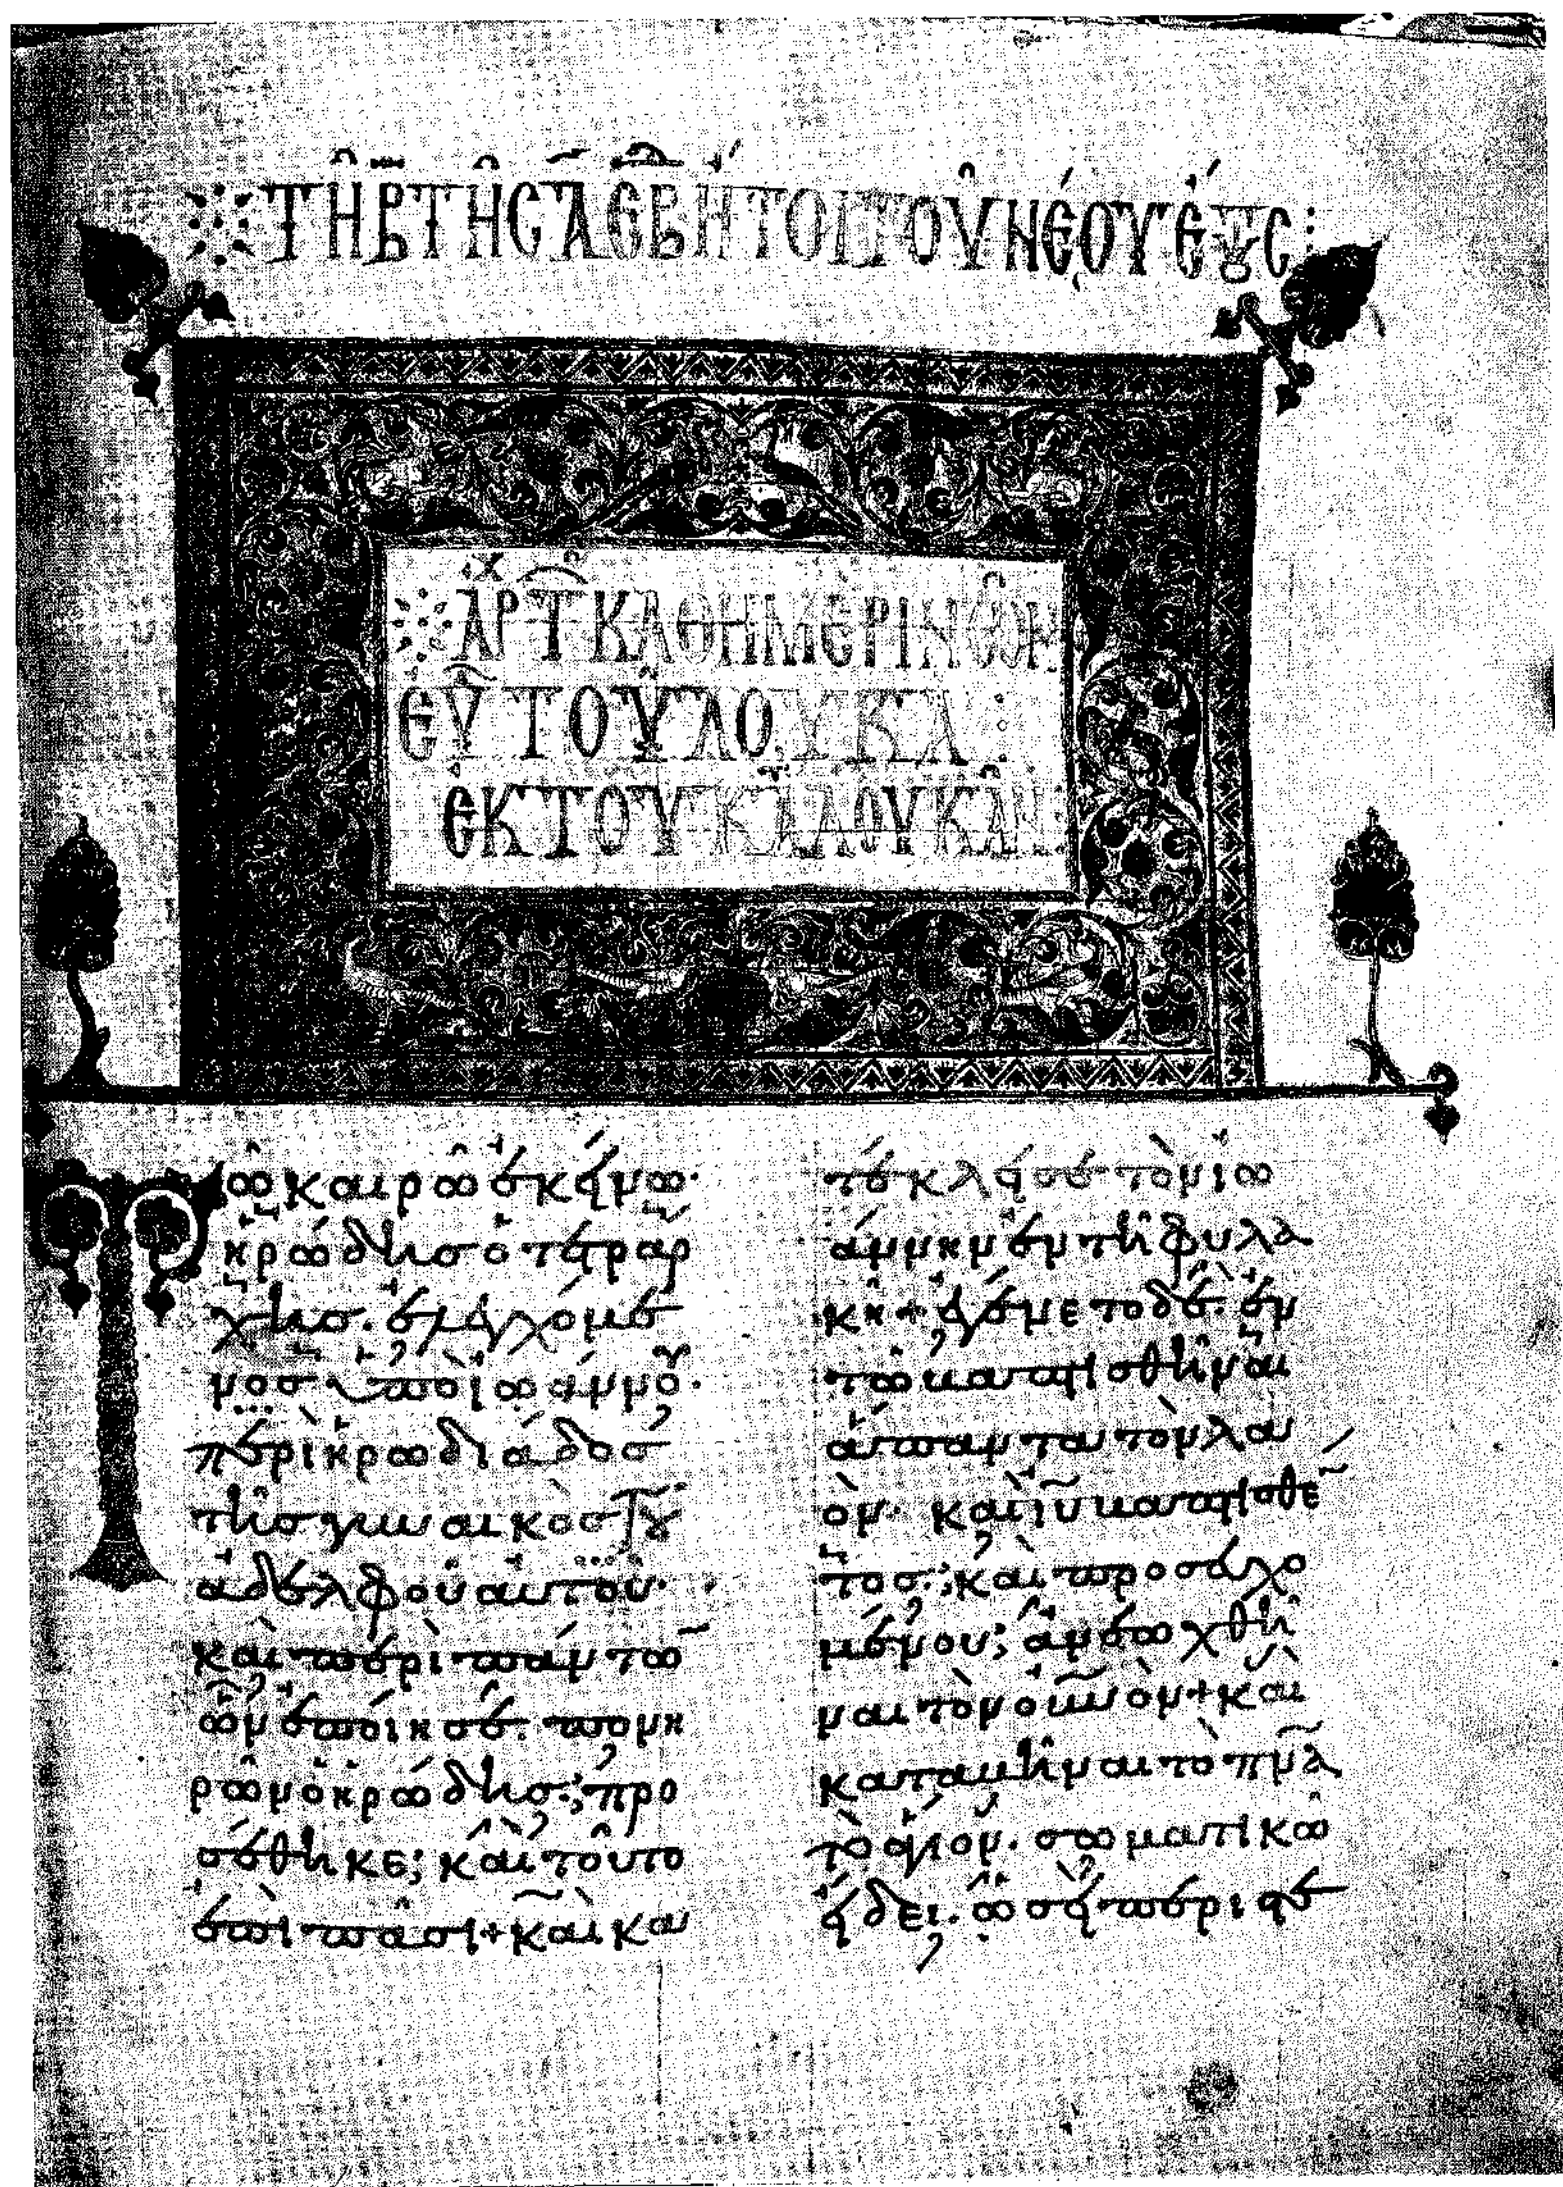 ΤΗ Β ΤΗΣ Α ΕΒ ΗΤΟΙ ΤΟΥ ΝΕΟΥ ΕΤΟΥΣ:
ΑΡΧ ΤΩΝ ΚΑΘΗΜΕΡΙΝΩΝ
ΕΥ ΤΟΥ ΛΟΥΚΑ:
ΕΚ ΤΟΥ ΚΑΤΑ ΛΟΥΚΑΝ:
Τῶ καιρῶ ἐκείνω·
ἡρώδης ὁ τετράρ
χης· ἐλεγχόμε
νος ὑπὸ ἰωάννου·
περὶ ἡρωδιάδος
τῆς γυναικὸς τοῦ
ἀδελφοῦ αὐτοῦ·
καὶ περὶ πάντω̄
ὧν ἐποίησε πονη
ρῶν ὁ ἡρώδης· προ
σέθηκε καὶ τοῦτο
ἐπὶ πᾶσι+ καὶ κα
τέκλεισε τὸν ἰω
άννην ἐν τῆ φυλα
κῆ+ ἐγένετο δὲ ἐν
τῶ βαπτισθῆναι
ἅπαντα τὸν λα
όν· καὶ ιῡ βαπτισθε̄
τος· καὶ προσευχο
μένου ἀνεωχθῆ
ναι τὸν οὐ̄νὸν+ καὶ
καταβῆναι τὸ πνᾱ
τὸ ἅγιον· σωματικῶ
εἴδει· ὡσεὶ περιστε